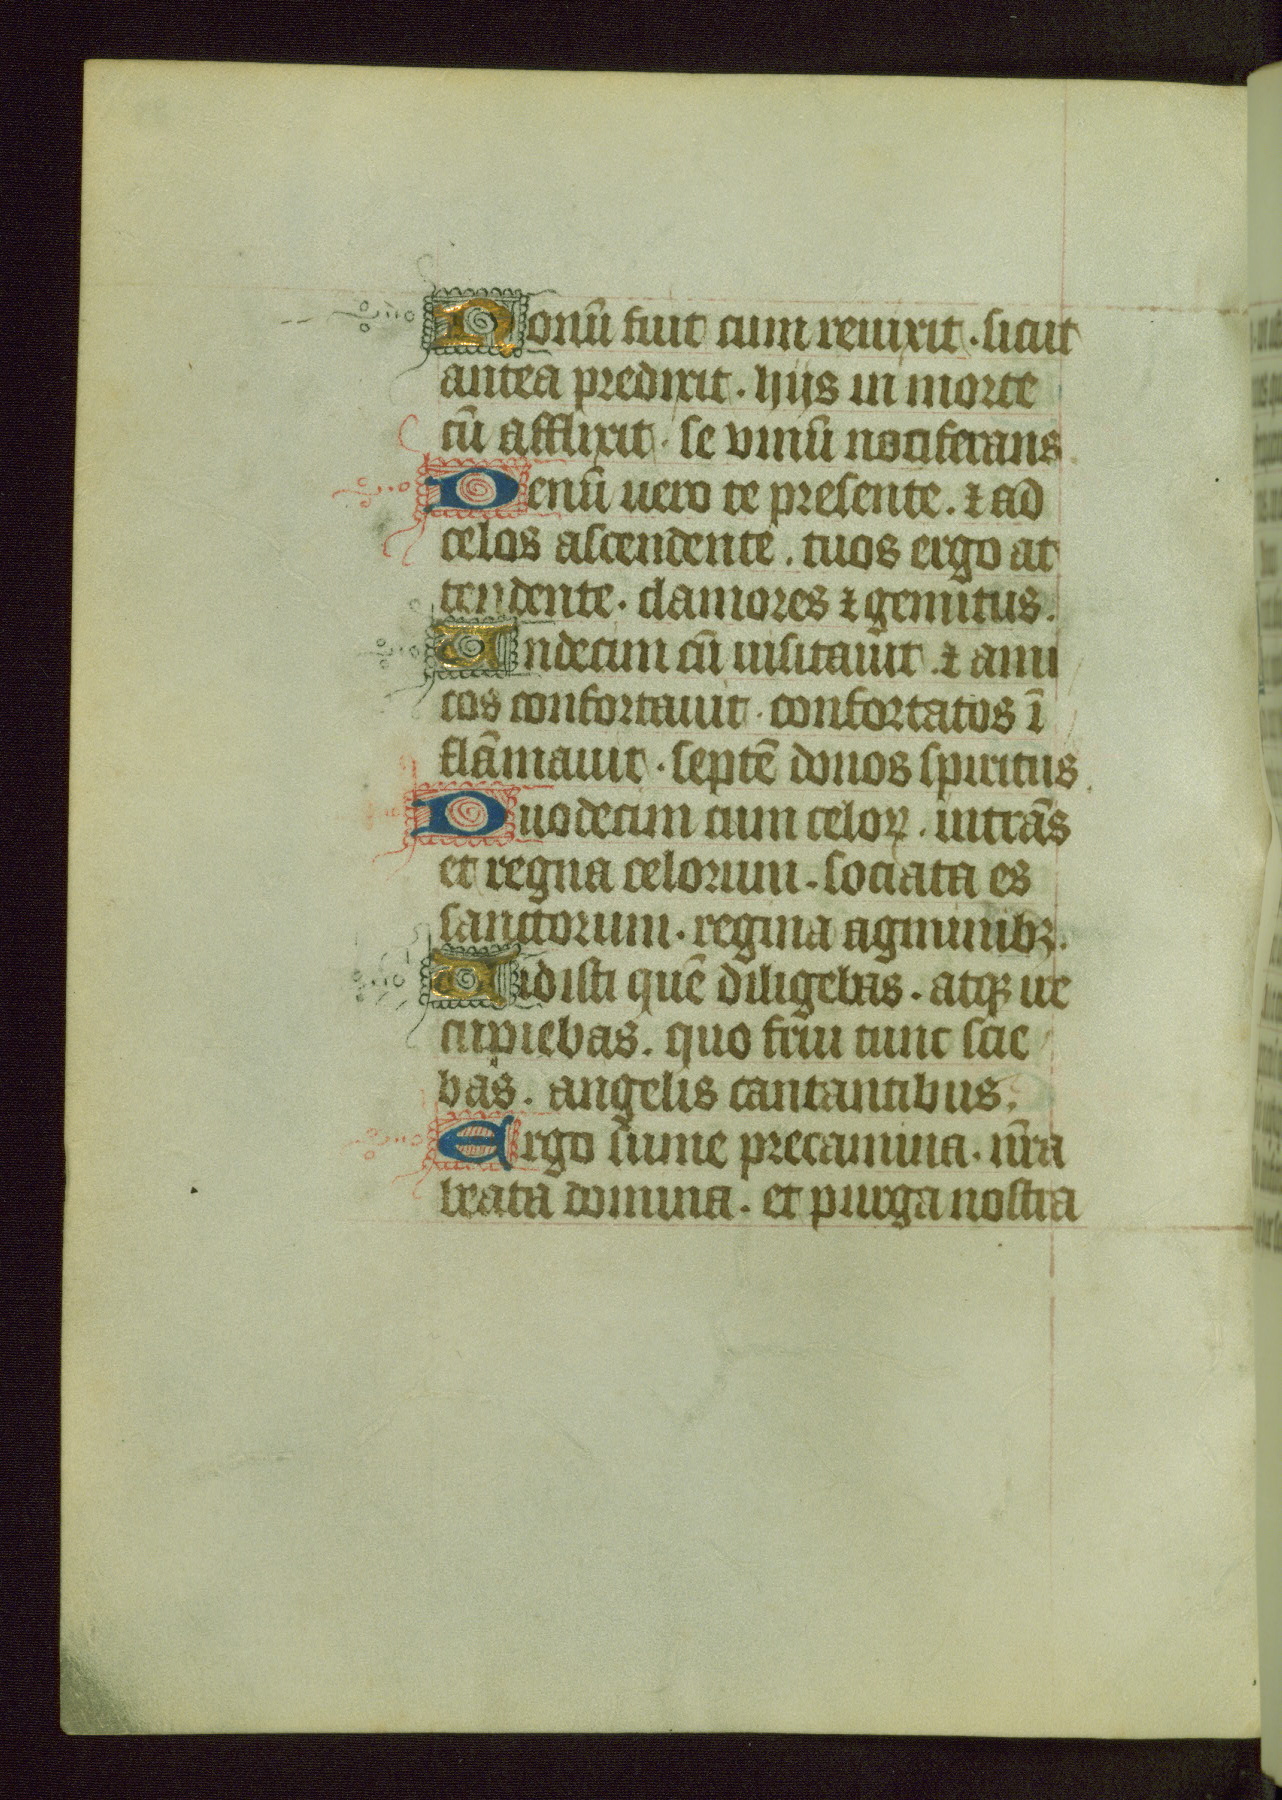 Nonū fuit cum reuixit · sicut
antea predixit · hijs in morte
cū afflixit · se viuū uociferans
Denū uero te presente . ⁊ ad
celos ascendente . tuos ergo at
tendente · clamores ⁊ gemitus .
Undecim cū uisitauit . ⁊ ami
cos confortauit · confortatos ī
flāmauit · septē donos spiritus .
Duodecim cum celoꝝ . intrās
et regna celorum . sociata es
sanctorum · regina agminibꝫ .
Uidisti quē diligebas . atqꝫ ue
cupiebas . quo frui tunc scie
bas . angelis cantantibus .
Ergo sume precamina . nr̄a
beata domina . et purga nostra